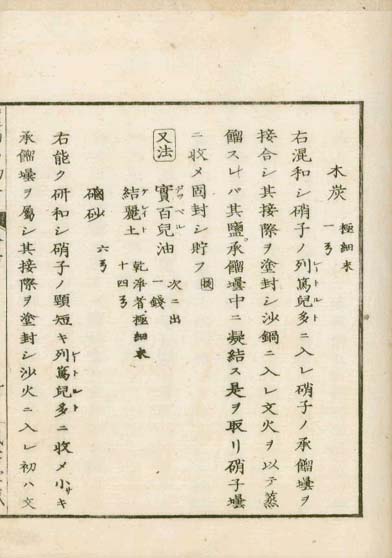 木炭 極細末 一弓
右混和シ硝子ノ列篤兒多ニ入レ硝子ノ承餾壜ヲ
レートルト
接合シ其接際ヲ塗封シ沙鍋ニ入レ文火ヲ以テ蒸
餾スレバ其鹽承餾壜中ニ凝結ス是ヲ取リ硝子壜
ニ收メ固封シ貯フ
又法 實百兒油 次ニ出 一錢
結麗土 乾浄者極細末 十四弓
ケレイト
硇砂 六弓
右能ク研和シ硝子ノ頸短キ列篤兒多ニ收メ小サキ
レートルト
承餾壜ヲ屬シ其接際ヲ塗封シ沙火ニ入レ初ハ文